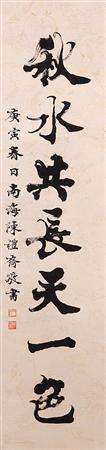 秋水共長天一色
庚寅春日南海陳禮齋敬書